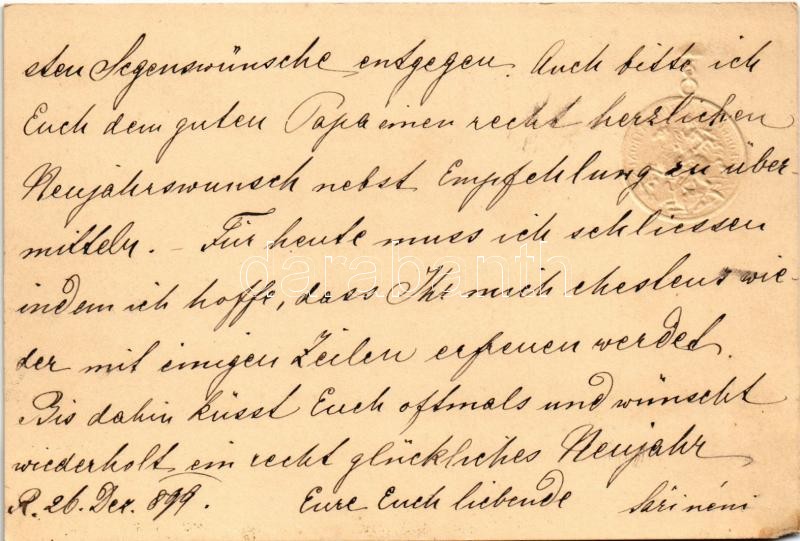 sten Segenswünsche entgegen. Auch bitte ich
Euch dem guten Papa einen recht herzlichen
Neujahrswunsch nebst Empfehlung zu über-
mitteln. – Für heute muss ich schliessen
indem ich hoffe, dass Ihr mich ehestens wie-
der mit einigen Zeilen erfreuen werdet.
Bis dahin küsst Euch oftmals und wünscht
wiederholt ein recht glückliches Neujahr
R. 26. Dez. 899. Eure Euch liebende Sári néni
darabanth